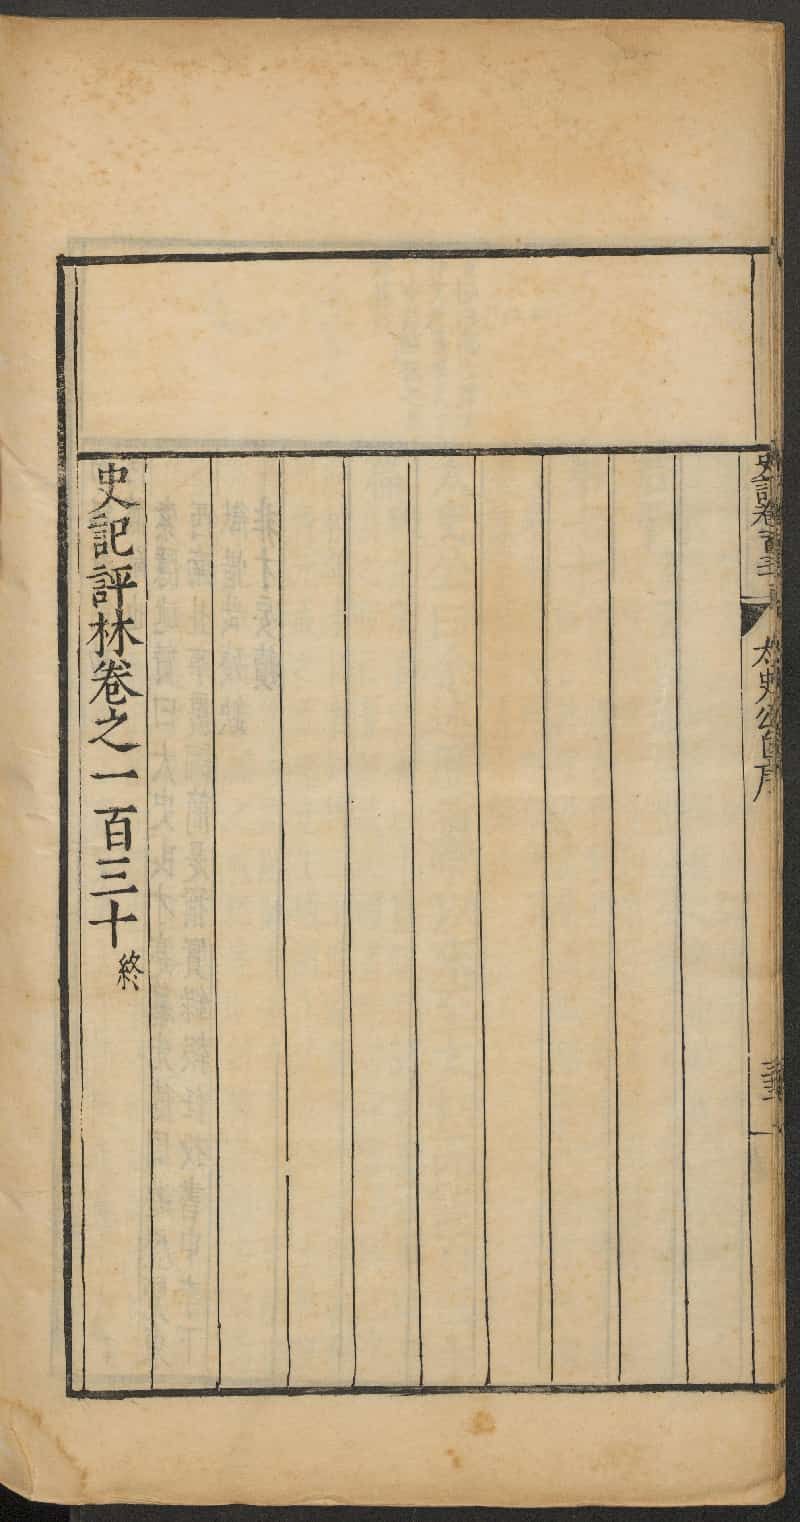 史記卷一百三十
太史公自序
史記評林卷之一百三十終